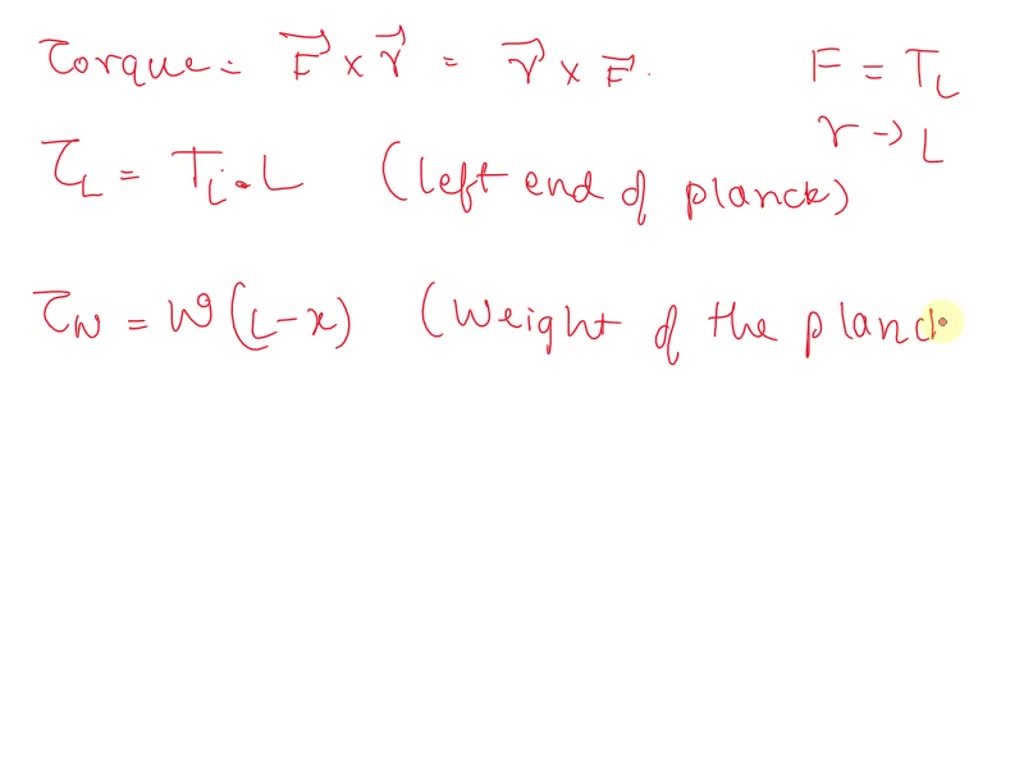 Torque = F⃗ × r⃗ = r⃗ × F⃗. F = T_L
r → L
τ_L = T_L . L (left end of planck)
τ_W = W (L-x) (Weight of the planc